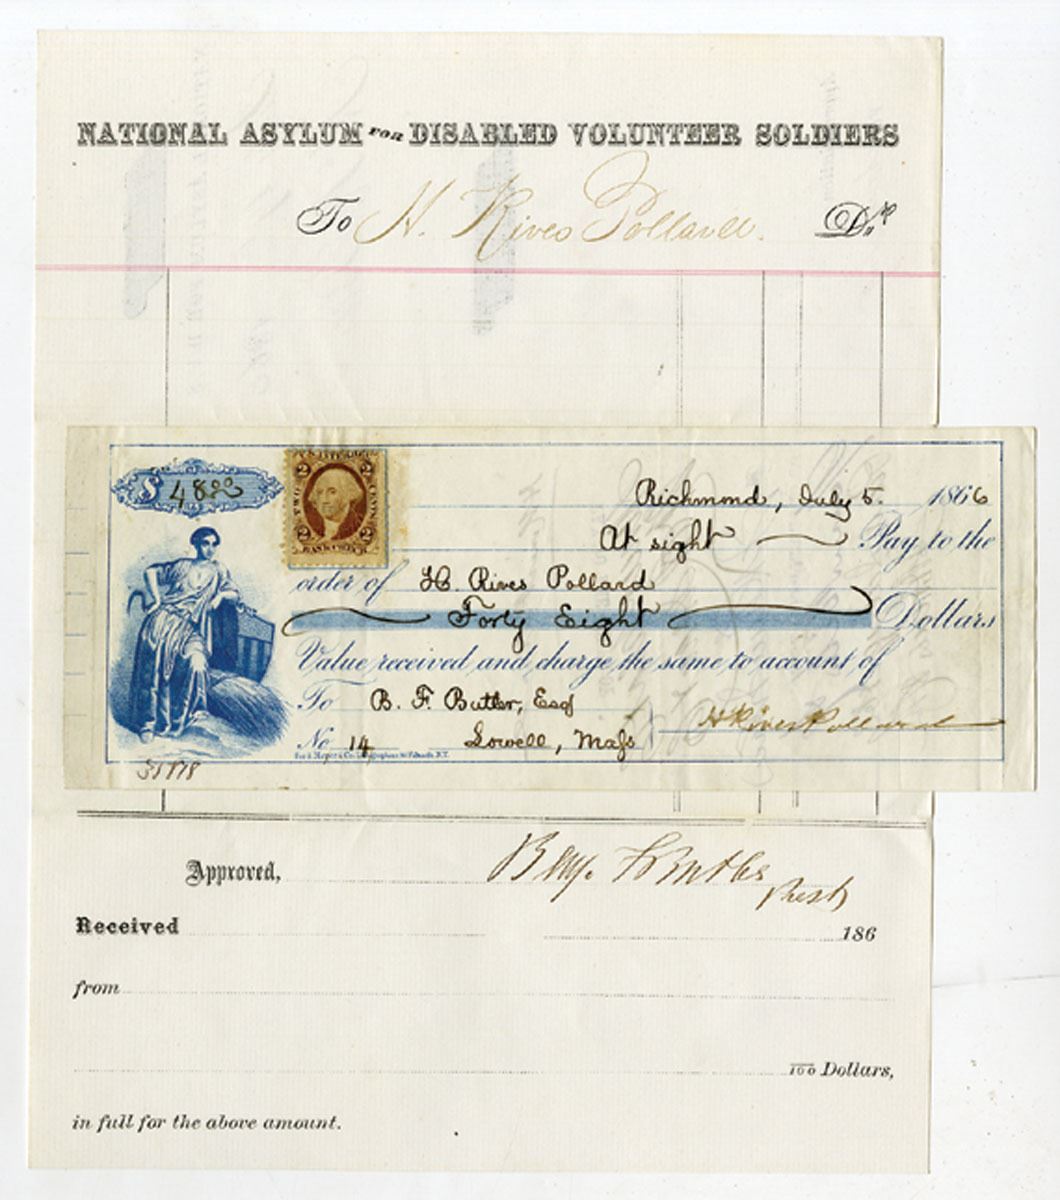 NATIONAL ASYLUM FOR DISABLED VOLUNTEER SOLDIERS
To H. Rives Pollard. Dr
$ 48.00
U.S. INTER. REV.
2 2
TWO CENTS
2 2
BANK CHECK
Richmond, July 5. 1866
At sight Pay to the
order of H. Rives Pollard
Forty Eight Dollars
Value received and charge the same to account of
To B. F. Butler, Esq
H Rives Pollard
No 14 Lowell, Mass
Approved, Benj. F Butler
Prest
Received 186
from
100 Dollars,
in full for the above amount.